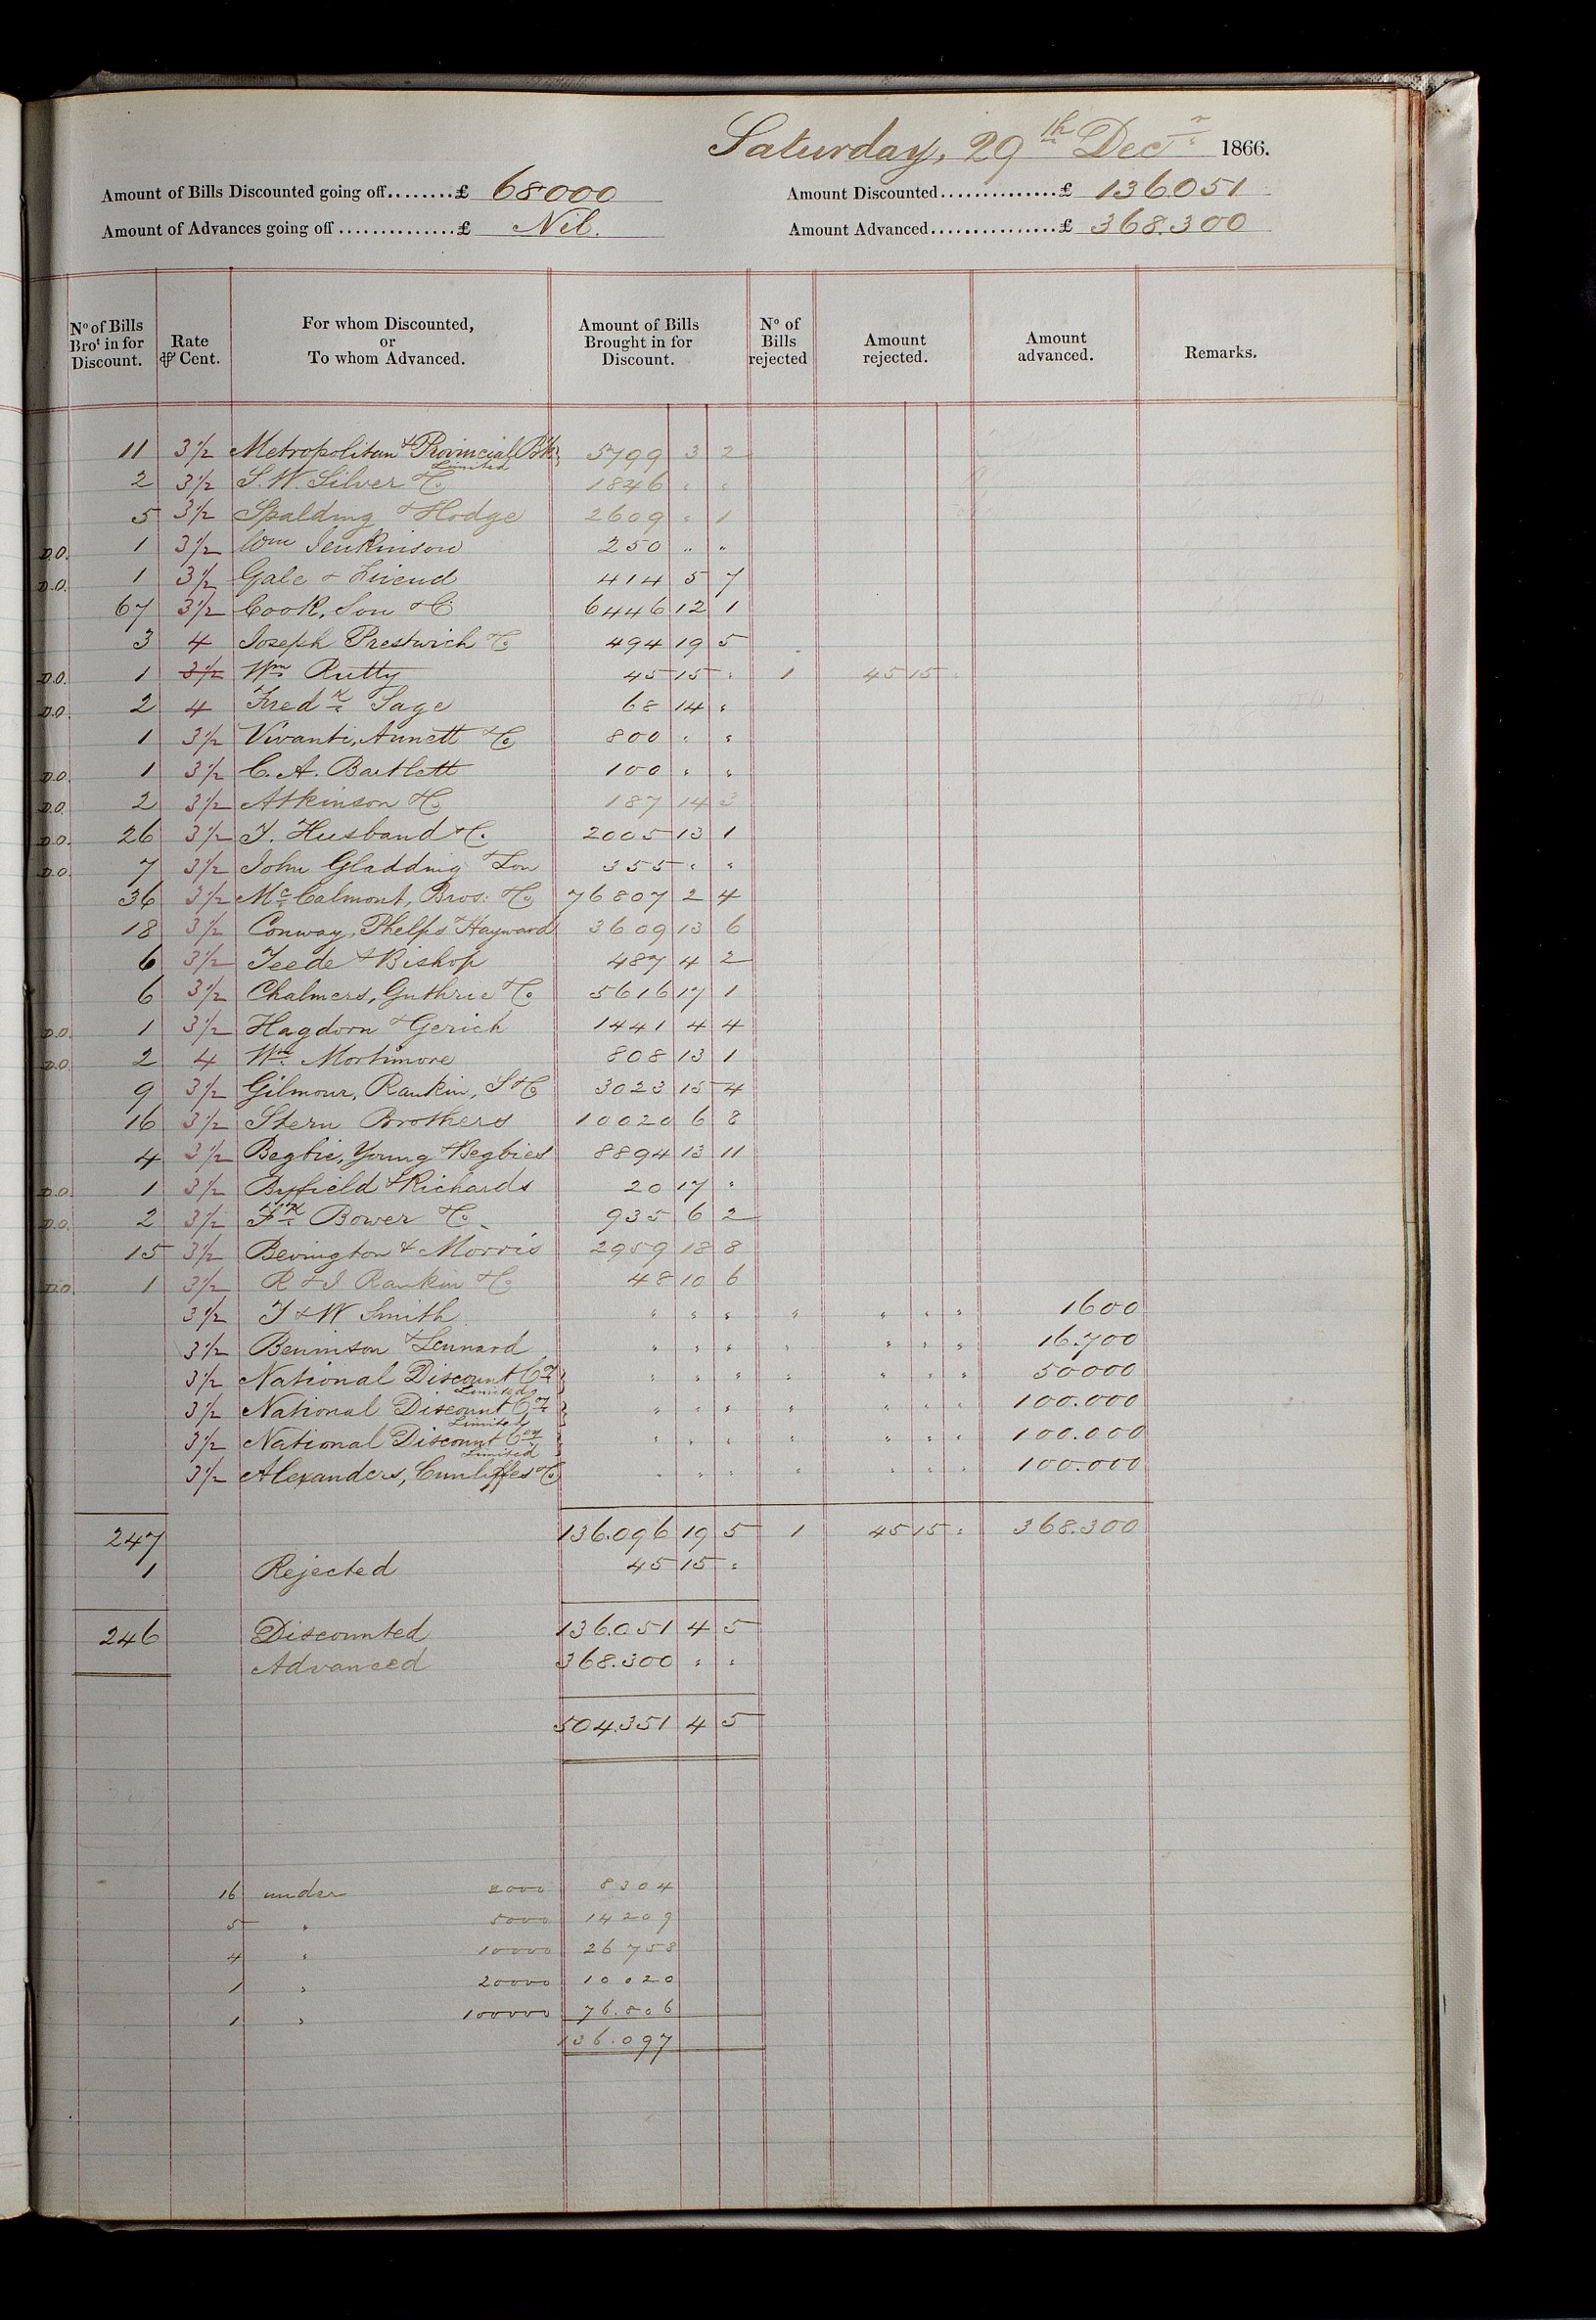 Saturday, 29th Decr 1866.
Amount of Bills Discounted going off........£ 68000 Amount Discounted..............£ 136051
Amount of Advances going off..............£ Nil. Amount Advanced...............£ 368.300
No of Bills Brot in for Discount. Rate ⅌ Cent. For whom Discounted, or To whom Advanced. Amount of Bills Brought in for Discount. No of Bills rejected Amount rejected. Amount advanced. Remarks.
11 3½ Metropolitan & Provincial Bk Limited 5799 3 2
2 3½ S. W. Silver & Co 1846 " "
5 3½ Spalding & Hodge 2609 " 1
D.O. 1 3½ Wm Jenkinson 250 " "
D.O. 1 3½ Gale & 414 5 7
67 3½ Cook, Son & Co 6446 12 1
3 4 Joseph Prestwich & Co 494 19 5
D.O. 1 3½ Wm Rutty 45 15 " 1 45 15 "
D.O. 2 4 Fredk Sage 68 14 "
1 3½ Vivanti, Aunett & Co 800 " "
D.O. 1 3½ C. A. Bartlett 100 " "
D.O. 2 3½ Atkinson & Co 187 14 3
D.O. 26 3½ T. Husband & Co 2005 13 1
D.O. 7 3½ John Gladding & Son 355 " "
36 3½ McCalmont, Bros. & Co 76807 2 4
18 3½ Conway, Phelps & Hayward 3609 13 6
6 3½ Teede & Bishop 487 4 2
6 3½ Chalmers, Guthrie & Co 5616 17 1
D.O. 1 3½ Hagdorn & Gerich 1441 4 4
D.O. 2 4 Wm Mortimore 808 13 1
9 3½ Gilmour, Rankin, S & Co 3023 15 4
16 3½ Stern Brothers 10020 6 8
4 3½ Begbie, Young & Begbies 8894 13 11
D.O. 1 3½ Byfield & Richards 20 17 "
D.O. 2 3½ Fk Bower & Co. 935 6 2
15 3½ Bevington & Morris 2959 18 8
D.O. 1 3½ R & J Rankin & Co 48 10 6
3½ T & W Smith " " " " " " " 1600
3½ Bennison & Lennard " " " " " " " 16.700
3½ National Discount Coy Limited " " " " " " " 50000
3½ National Discount Coy Limited " " " " " " " 100.000
3½ National Discount Coy Limited " " " " " " " 100.000
3½ Alexanders, Cunliffes & Co " " " " " " " 100.000
247 136.096 19 5 1 45 15 " 368.300
1 Rejected 45 15 "
246 Discounted 136.051 4 5
Advanced 368.300 " "
504.351 4 5
16 under 2000 8304
5 " 5000 14209
4 " 10000 26758
1 " 20000 10020
1 " 100000 76.806
136.097